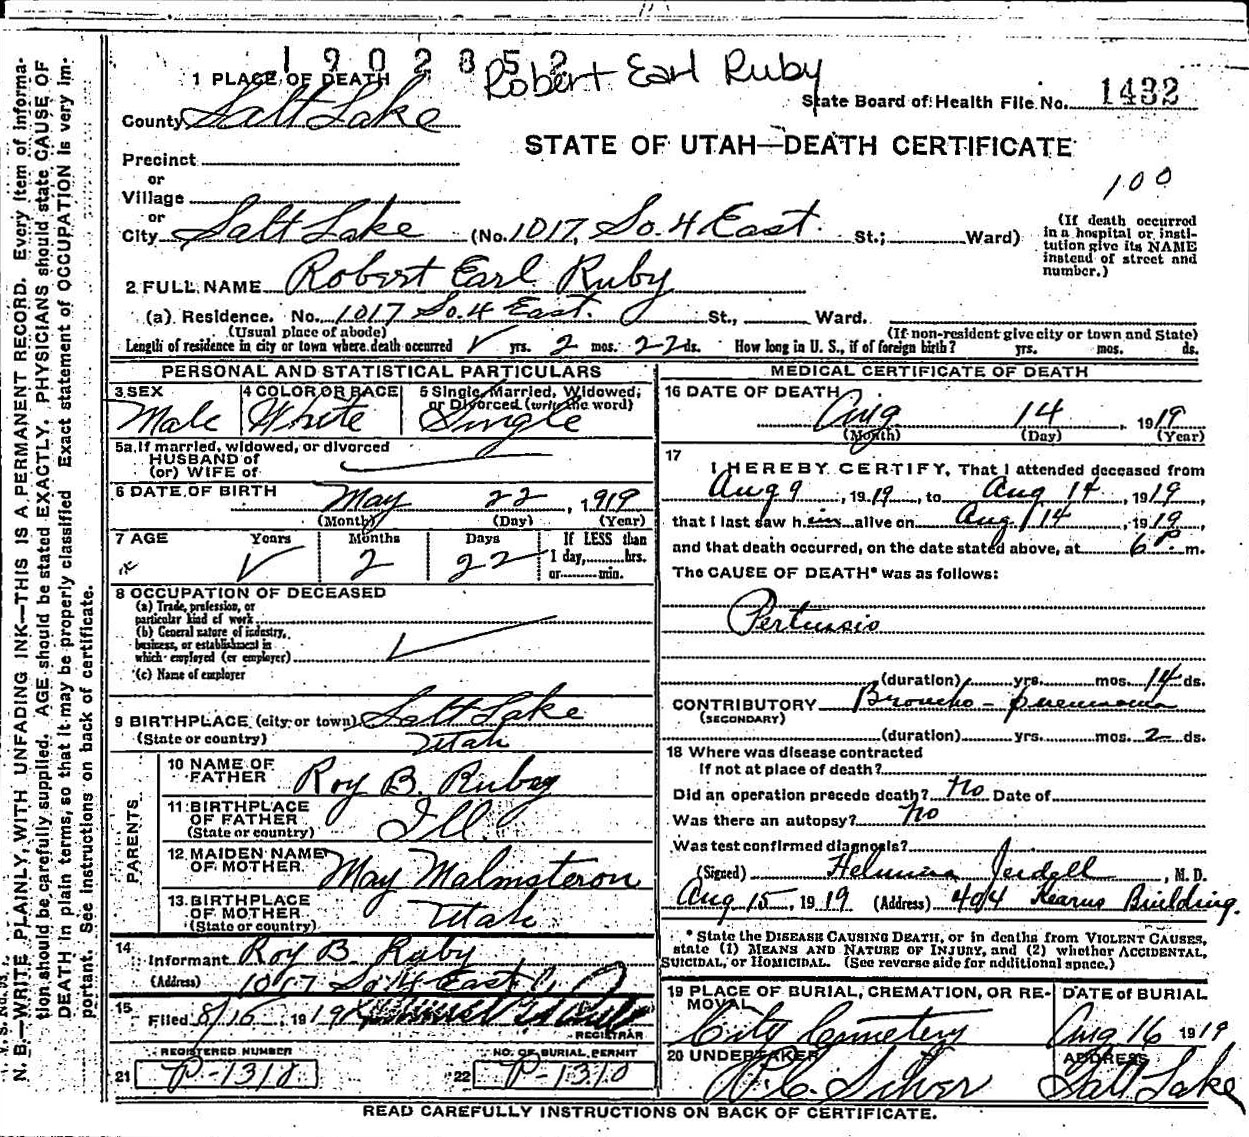 1902852
Robert Earl Ruby
1 PLACE OF DEATH
State Board of Health File No. 1432
County Salt Lake
STATE OF UTAH—DEATH CERTIFICATE
Precinct
or
100
Village
or
City Salt Lake (No. 1017, So. 4 East St.; Ward)
(If death occurred in a hospital or insti-
tution give its NAME
instead of street and
number.)
2 FULL NAME Robert Earl Ruby
(a) Residence. No. 1017 So. 4 East. St., Ward.
(Usual place of abode) (If non-resident give city or town and State)
Length of residence in city or town where death occurred yrs. 2 mos. 22 ds. How long in U. S., if of foreign birth? yrs. mos. ds.
PERSONAL AND STATISTICAL PARTICULARS
3 SEX Male
4 COLOR OR RACE White
5 Single, Married, Widowed,
or Divorced (write the word)
Single
5a. If married, widowed, or divorced
HUSBAND of
(or) WIFE of
6 DATE OF BIRTH May 22, 1919
(Month) (Day) (Year)
7 AGE Years Months Days If LESS than
1 day, hrs.
or min.
2 22
8 OCCUPATION OF DECEASED
(a) Trade, profession, or
particular kind of work
(b) General nature of industry,
business, or establishment in
which employed (or employer)
(c) Name of employer
9 BIRTHPLACE (city or town) Salt Lake
(State or country) Utah
PARENTS
10 NAME OF
FATHER Roy B. Ruby
11 BIRTHPLACE
OF FATHER
(State or country) Ill.
12 MAIDEN NAME
OF MOTHER May Malmsteron
13 BIRTHPLACE
OF MOTHER
(State or country) Utah
14
Informant Roy B. Ruby
(Address) 1017 So. 4 East
15
Filed 8/16, 1919
REGISTRAR
REGISTERED NUMBER
21 P-1318
NO. OF BURIAL PERMIT
22 P-1310
MEDICAL CERTIFICATE OF DEATH
16 DATE OF DEATH
Aug 14, 1919
(Month) (Day) (Year)
17
I HEREBY CERTIFY, That I attended deceased from
Aug 9, 1919, to Aug 14, 1919,
that I last saw him alive on Aug 14, 1919,
and that death occurred, on the date stated above, at 6 P. m.
The CAUSE OF DEATH* was as follows:
Pertussis
(duration) yrs. mos. 14 ds.
CONTRIBUTORY Broncho-pneumonia
(SECONDARY)
(duration) yrs. mos. 2 ds.
18 Where was disease contracted
If not at place of death?
Did an operation precede death? No Date of
Was there an autopsy? No
Was test confirmed diagnosis?
(Signed) , M. D.
Aug 15, 1919 (Address) 404 Kearns Building.
* State the DISEASE CAUSING DEATH, or in deaths from VIOLENT CAUSES,
state (1) MEANS AND NATURE OF INJURY, and (2) whether ACCIDENTAL,
SUICIDAL, or HOMICIDAL. (See reverse side for additional space.)
19 PLACE OF BURIAL, CREMATION, OR RE-
MOVAL
City Cemetery
DATE of BURIAL
Aug 16 1919
20 UNDERTAKER
Silver
ADDRESS
Salt Lake
READ CAREFULLY INSTRUCTIONS ON BACK OF CERTIFICATE.
N. B.—WRITE PLAINLY, WITH UNFADING INK—THIS IS A PERMANENT RECORD. Every item of informa-
tion should be carefully supplied. AGE should be stated EXACTLY. PHYSICIANS should state CAUSE OF
DEATH in plain terms, so that it may be properly classified. Exact statement of OCCUPATION is very im-
portant. See instructions on back of certificate.